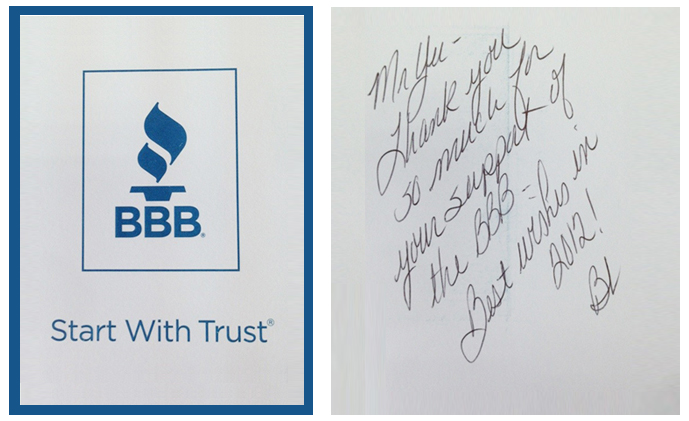 BBB®
Start With Trust®
Mr Yu -
Thank you
so much for
your support of
the BBB -
Best wishes in
2012!
BL